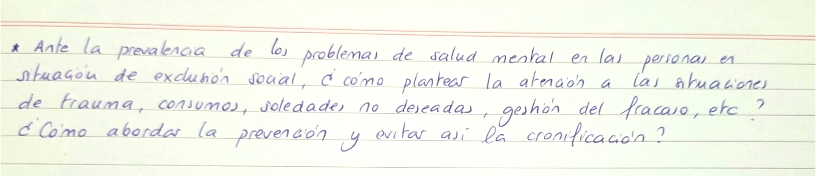 * Ante la prevalencia de los problemas de salud mental en las personas en
situación de exclusión social, ¿cómo plantear la atención a las situaciones
de trauma, consumos, soledades no deseadas, gestión del fracaso, etc?
¿Cómo abordar la prevención y evitar así la cronificación?